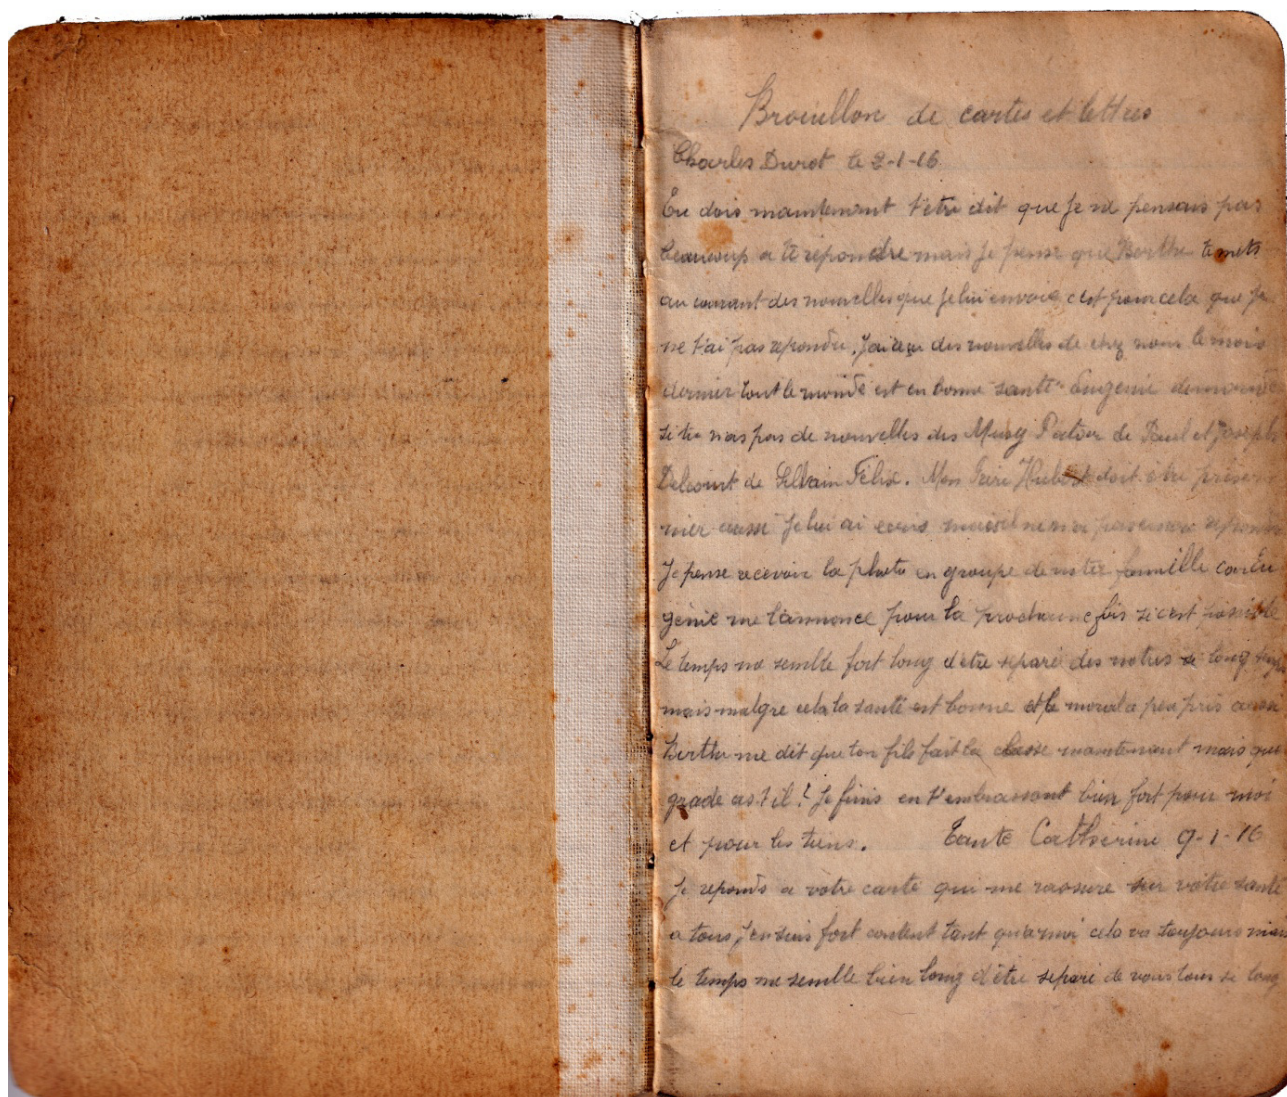 Brouillon de cartes et lettres
Charles Durot le 2-1-16
Tu dois maintenant t'être dit que je ne pensais pas
beaucoup a te repondre mais je pense que Berthe te mets
au courant des nouvelles que je lui envoie c'est pour cela que je
ne t'ai pas repondu. J'ai eu des nouvelles de chez nous le mois
dernier tout le monde est en bonne santé Eugenie demande
si tu n'as pas de nouvelles des de Paul et Joseph
Delcourt de Félix. Mon frère Hubert doit etre prison
nier aussi je lui ai ecris mais il ne m'a pas encore repondu
Je pense recevoir la photo en groupe de notre famille car Eu
génie me l'annonce pour la prochaine fois si c'est possible
Le temps me semble fort long d'être separé des notres si longtemps
mais malgre cela la santé est bonne et le moral a peu pris aussi
Berthe me dit que ton fils fait la classe maintenant mais quel
grade as t'il? Je finis en t'embrassant bien fort pour moi
et pour les tiens. Tante Catherine 9-1-16
Je reponds a votre carte qui me rassure sur votre santé
a tous j'en suis fort content tant qu'a moi cela va toujours mais
le temps me semble bien long d'être separé de vous tous si long